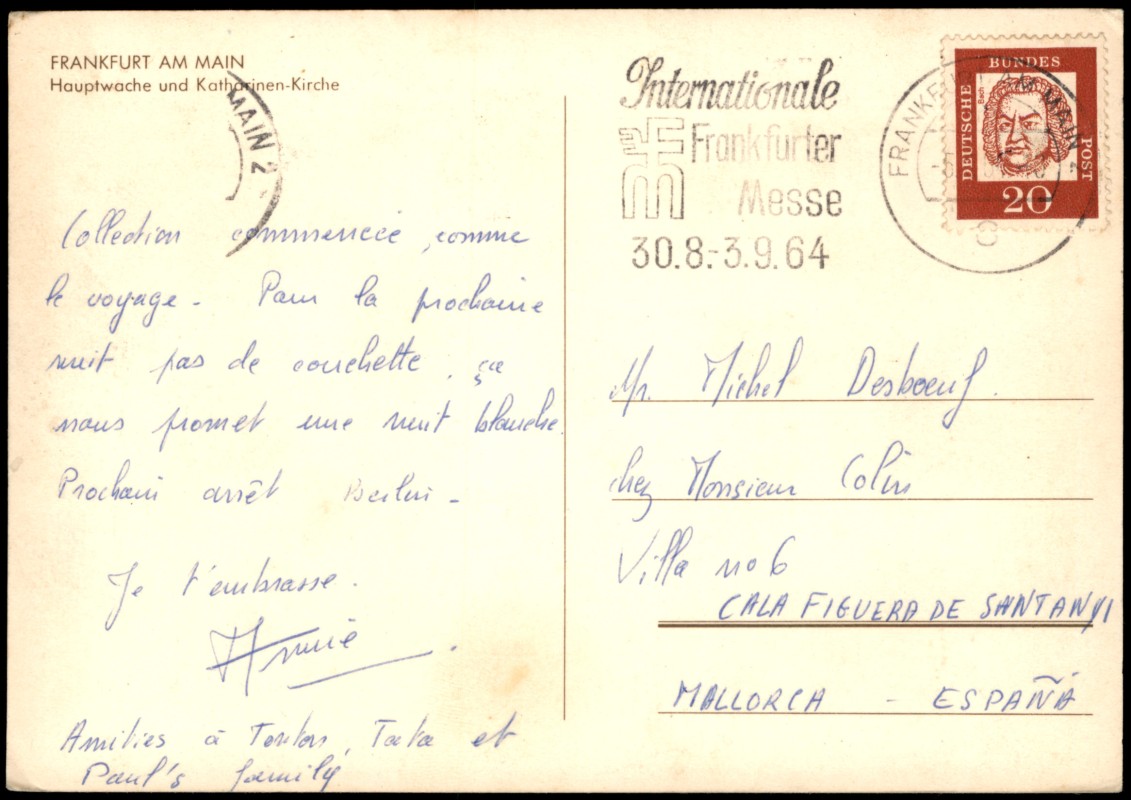 FRANKFURT AM MAIN
Hauptwache und Katharinen-Kirche
MAIN 2
Collection commencée, comme
le voyage - Pour la prochaine
nuit pas de couchette, ça
nous promet une nuit blanche.
Prochain arrêt Berlin -
Je t'embrasse.
Annie
Amitiés à Tonton, Tata et
Paul's family
Internationale
Frankfurter
Messe
30.8.-3.9.64
FRANKFURT AM MAIN 2
DEUTSCHE BUNDES POST
Bach
20
Mr. Michel Desboeuf.
chez Monsieur Colin
Villa no 6
CALA FIGUERA DE SANTANYI
MALLORCA - ESPAÑA